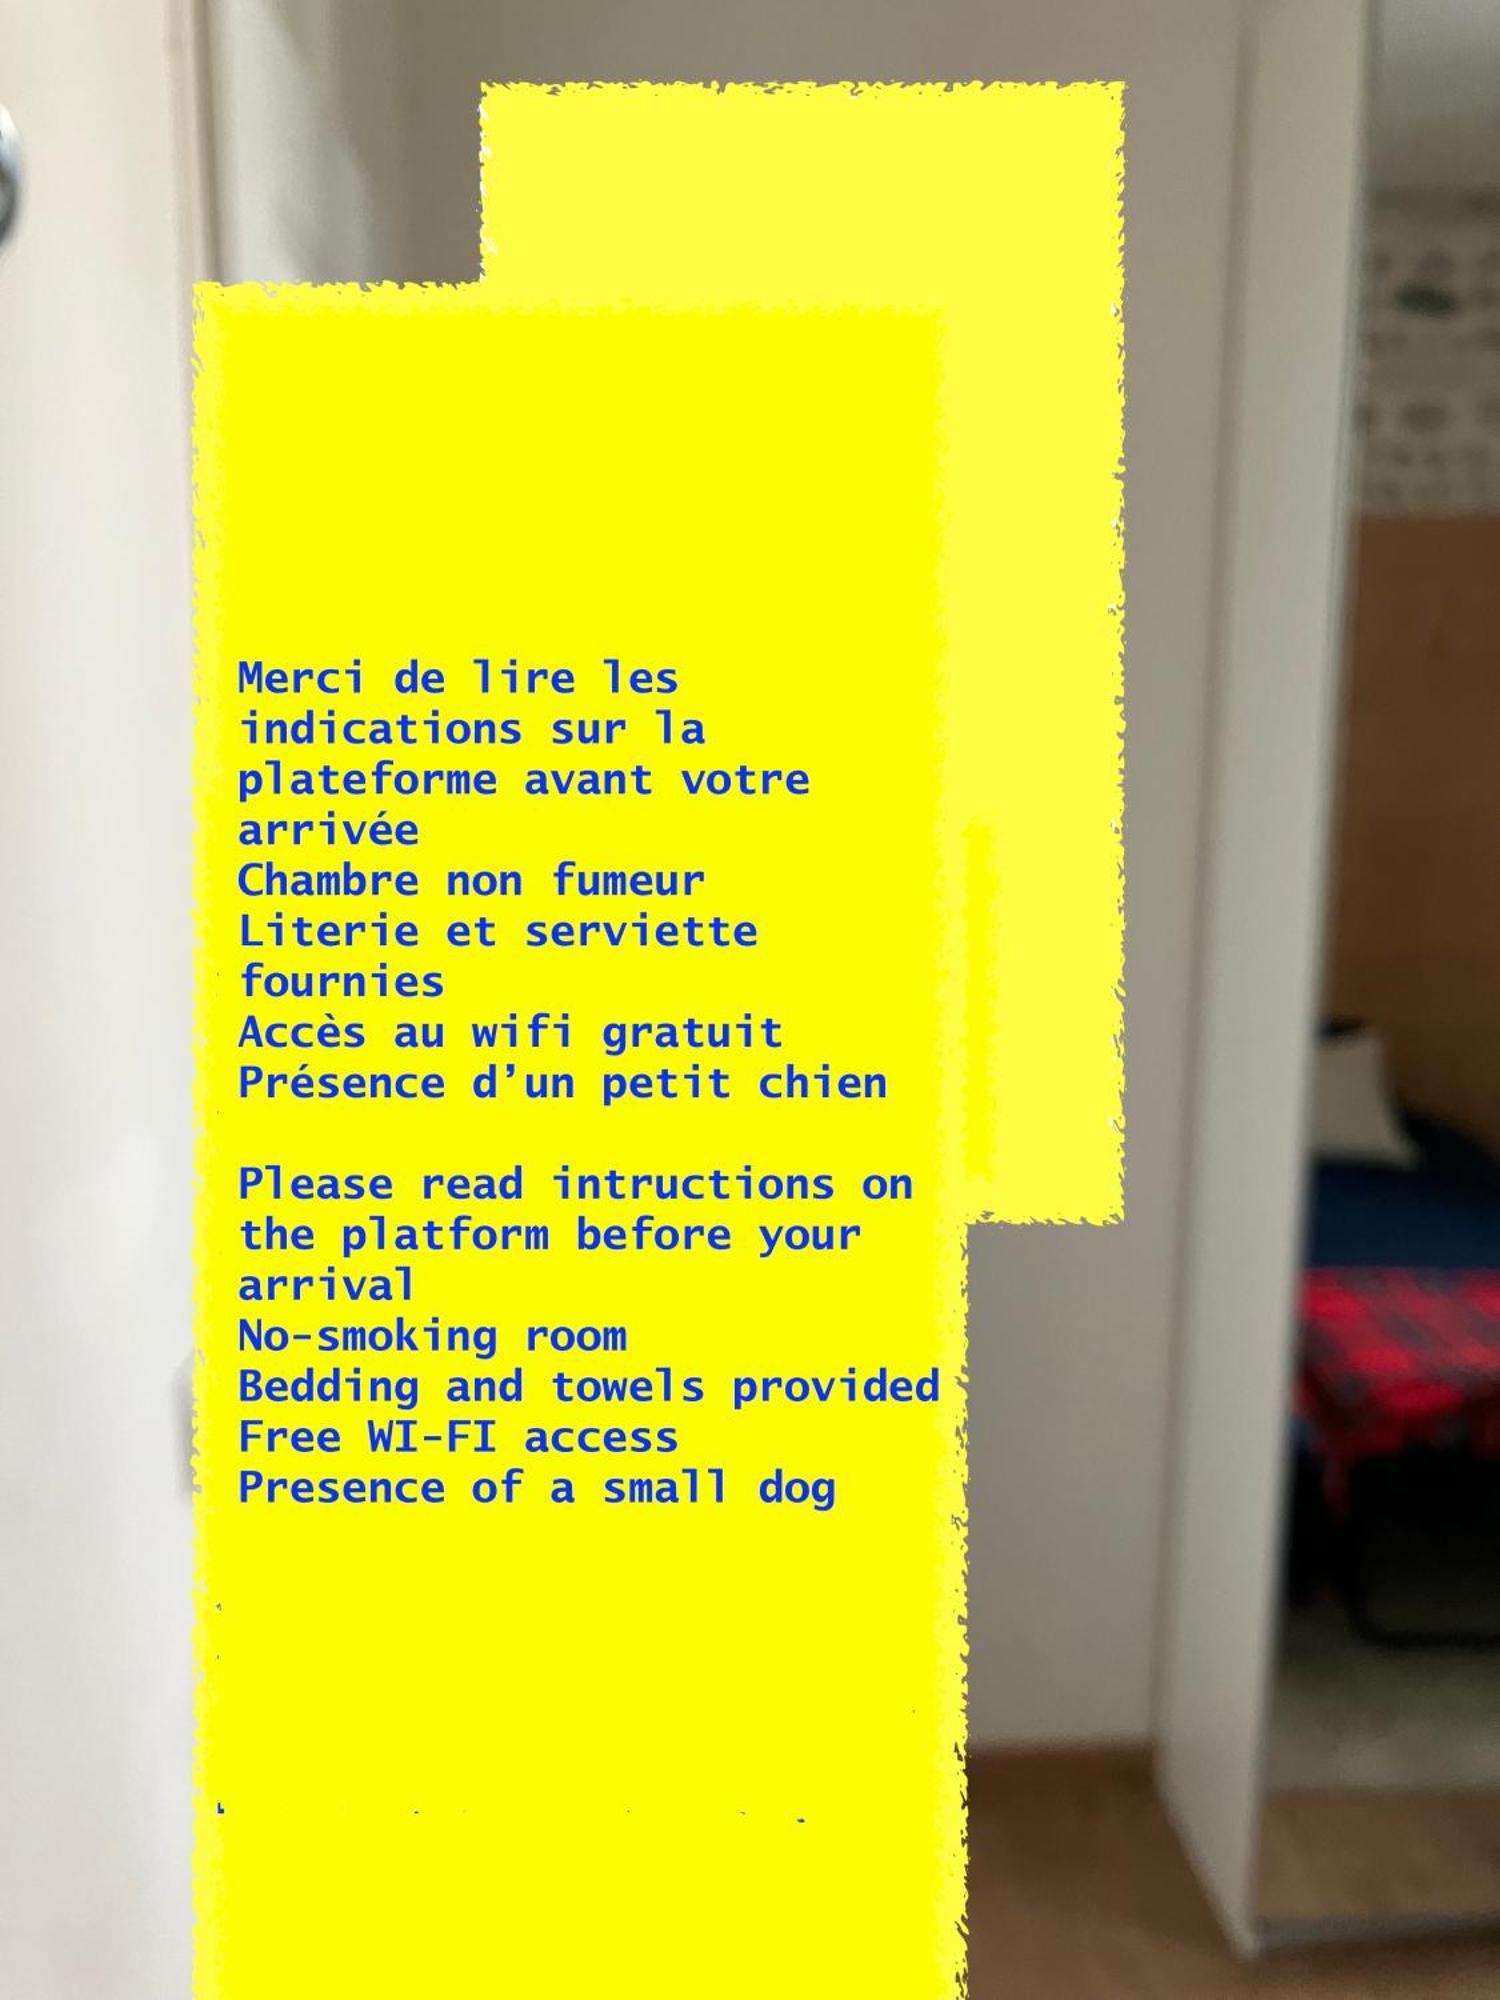 Merci de lire les
indications sur la
plateforme avant votre
arrivée
Chambre non fumeur
Literie et serviette
fournies
Accès au wifi gratuit
Présence d’un petit chien
Please read intructions on
the platform before your
arrival
No-smoking room
Bedding and towels provided
Free WI-FI access
Presence of a small dog